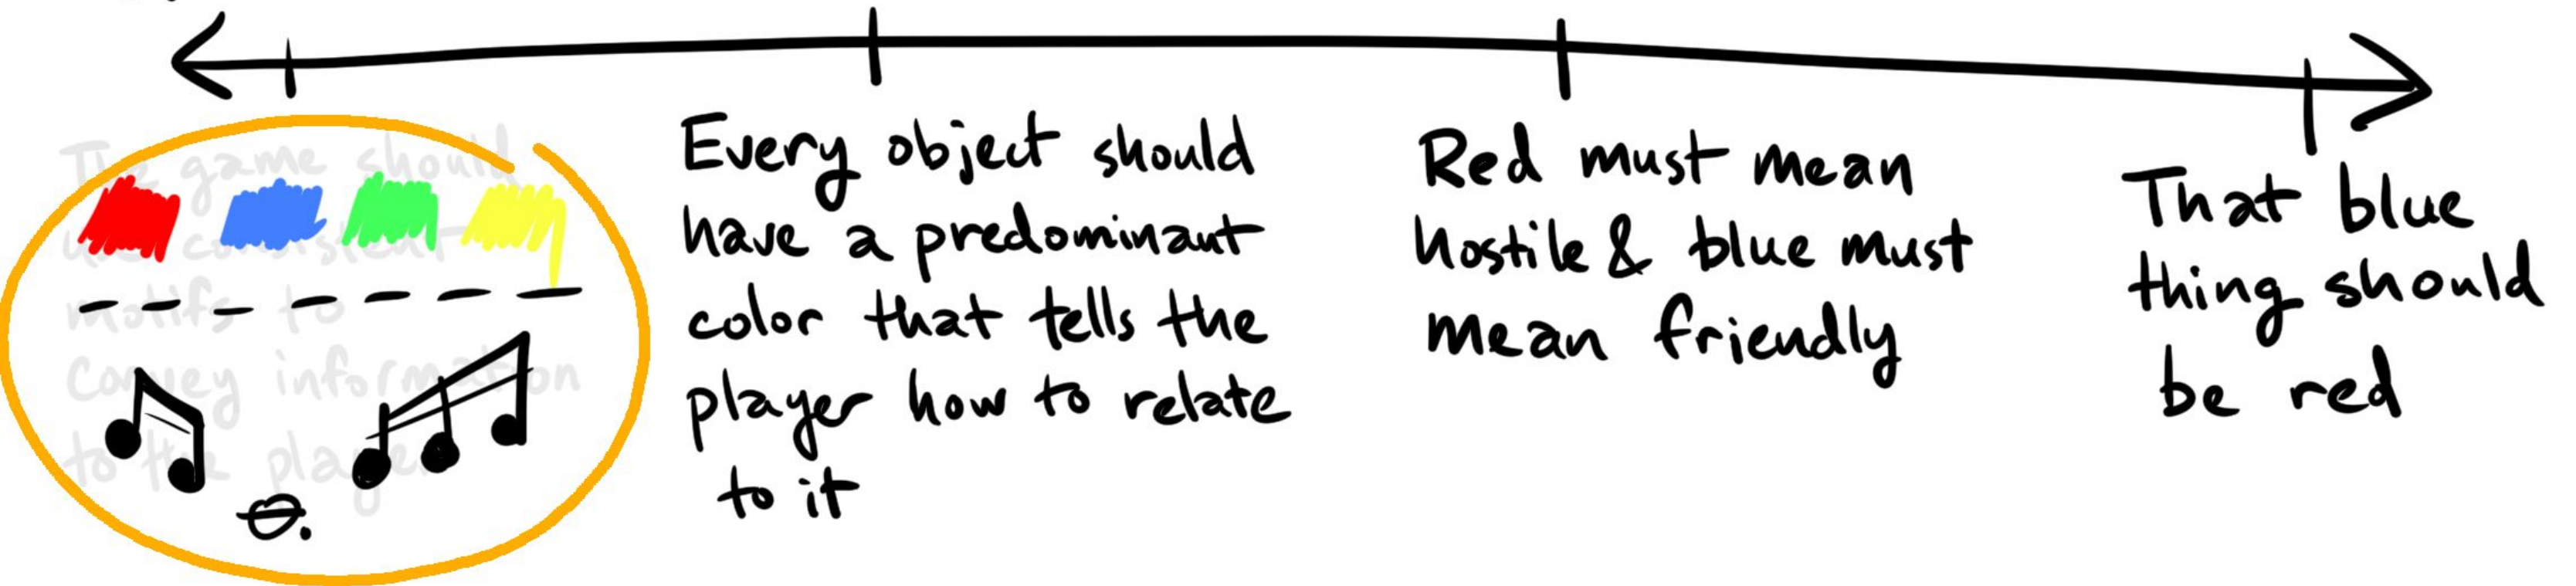 The game should
use consistent
motifs to
convey information
to the player
Every object should
have a predominant
color that tells the
player how to relate
to it
Red must mean
hostile & blue must
mean friendly
That blue
thing should
be red